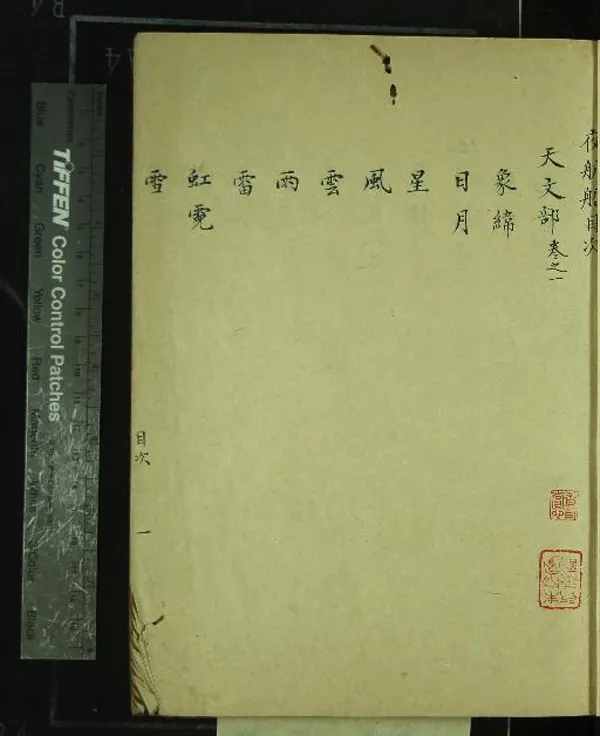 夜航船目次
天文部 卷之一
象緯
日月
星
風
雲
雨
雷
虹霓
雪
目次
一
TIFFEN Color Control Patches
Blue
Cyan
Green
Yellow
Red
Magenta
White
3/Color
Black
Centimetres